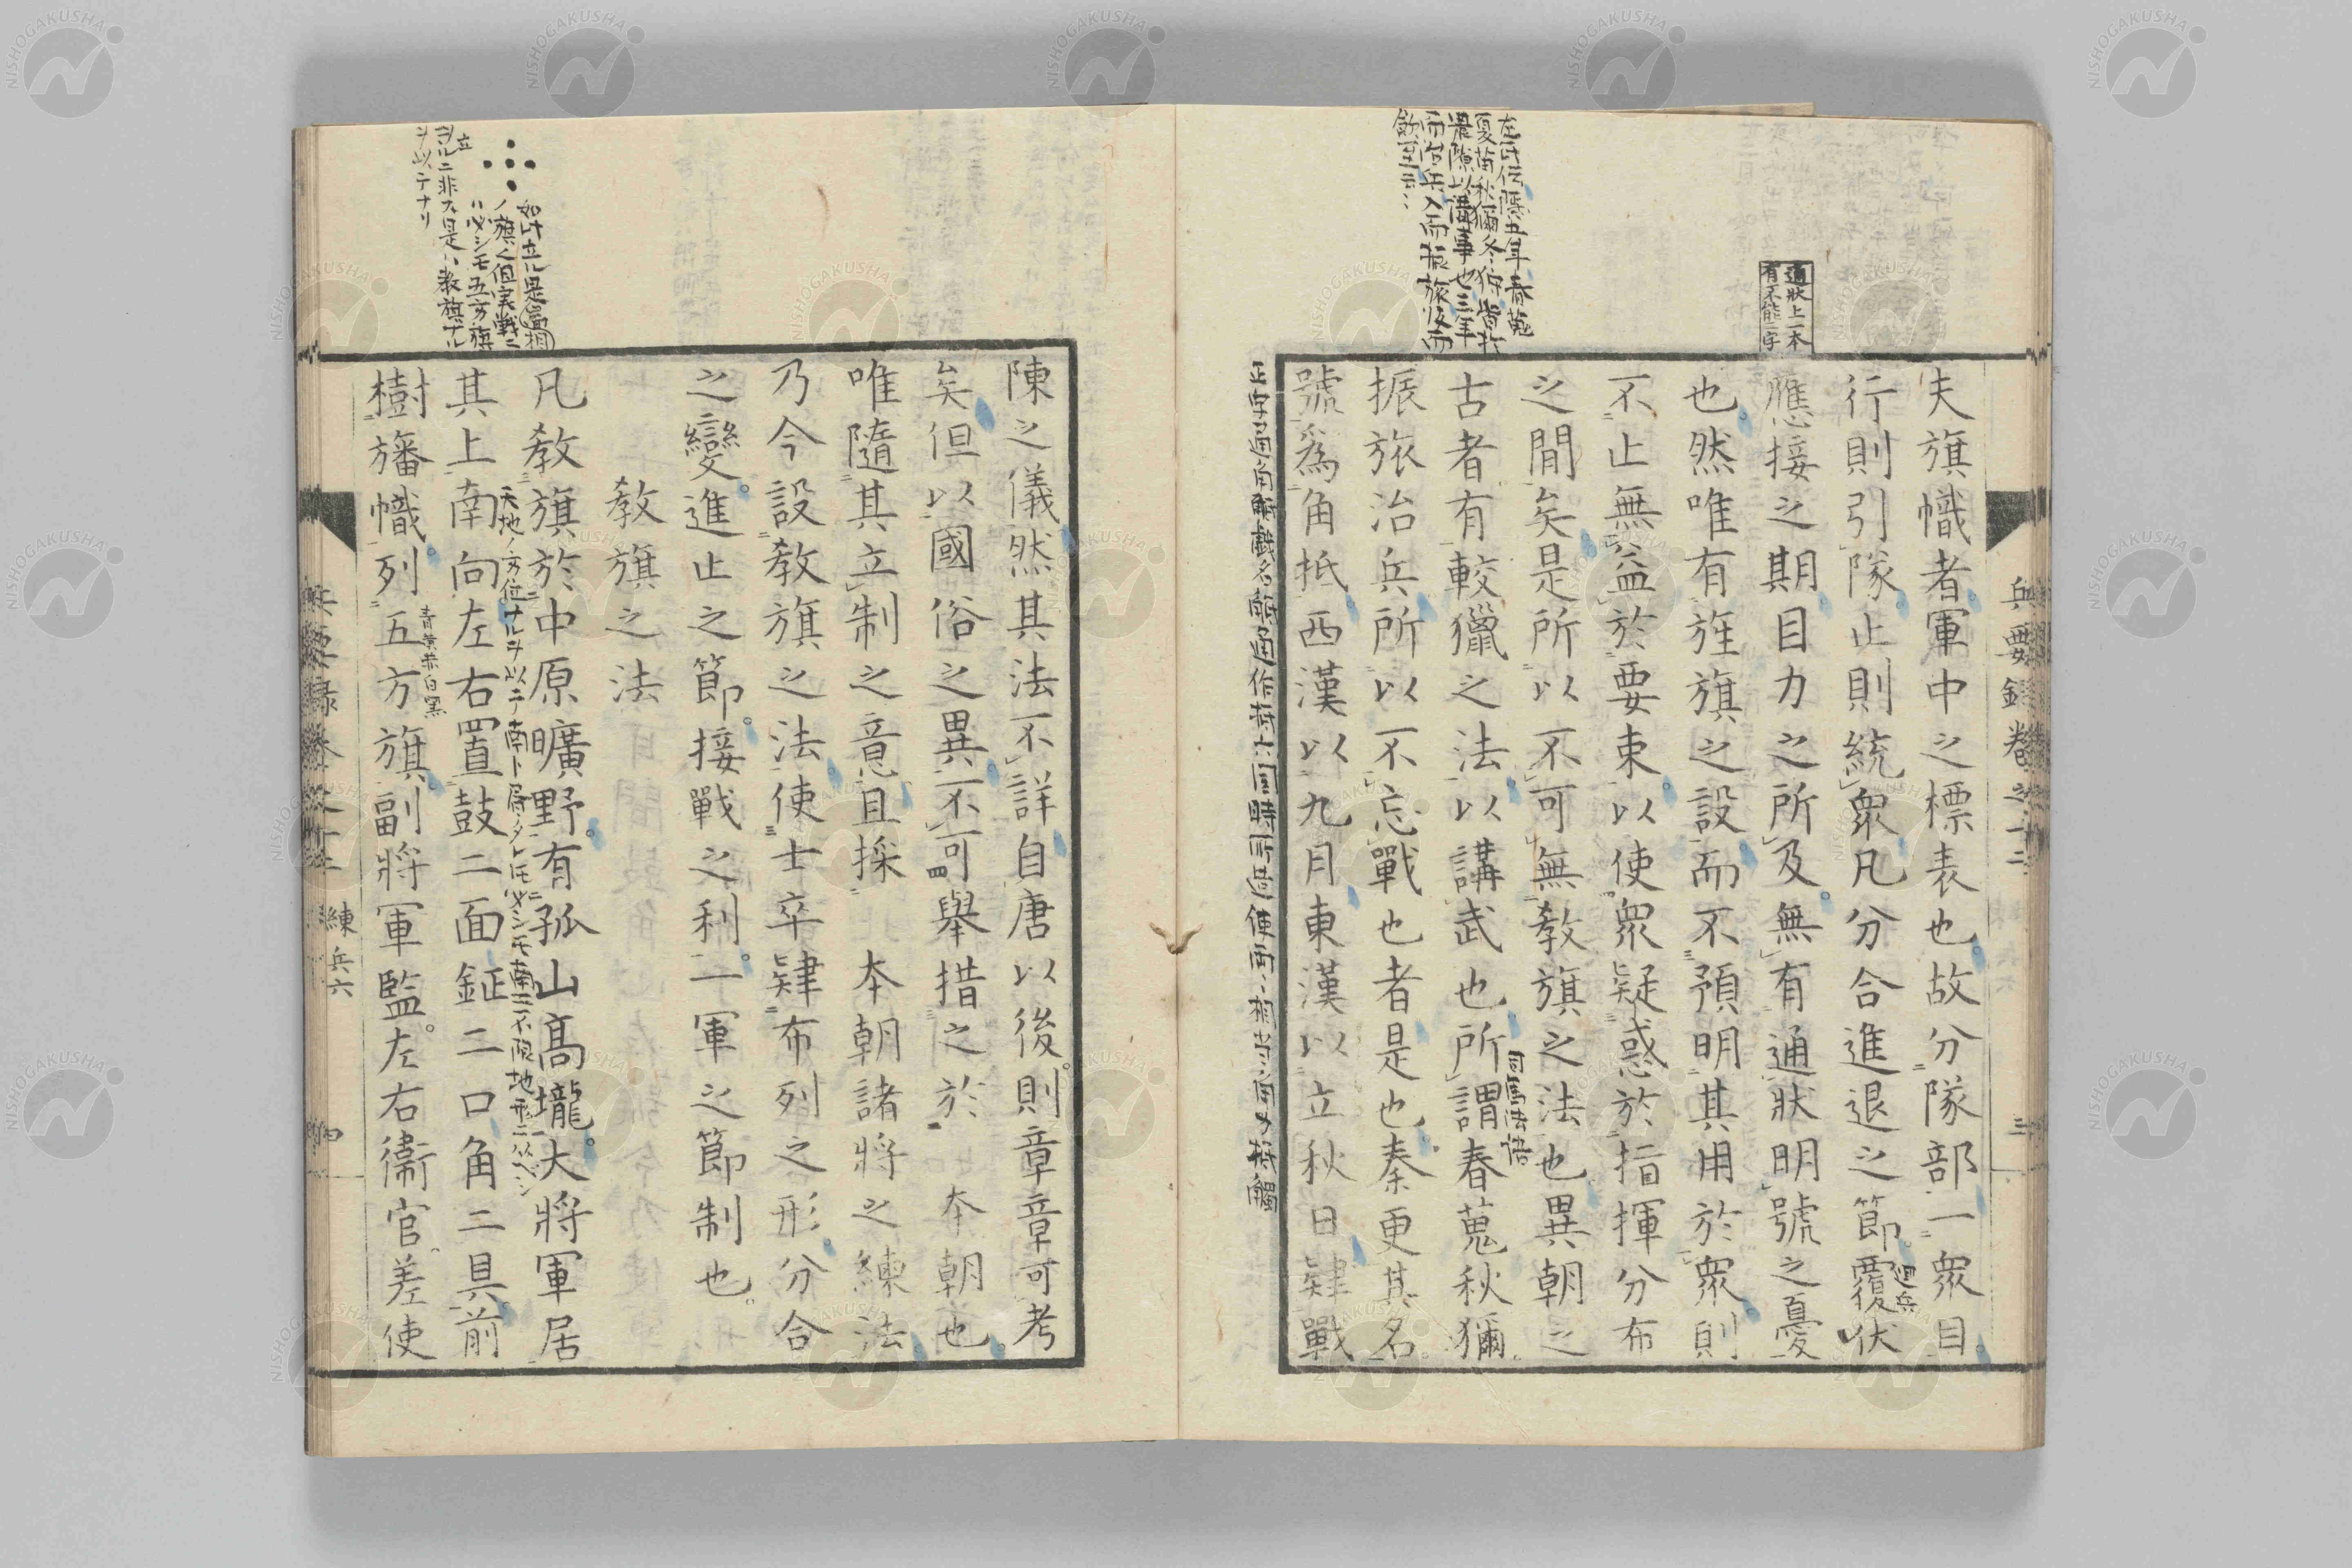 兵要錄卷之十二
三
夫旗幟者軍中之標表也故分隊部一衆目
行則引隊止則統衆凡分合進退之節覆伏
應接之期目力之所及無有通狀明號之憂
也然唯有旌旗之設而不預明其用於衆則
不止無益於要束以使衆疑惑於指揮分布
之間矣是所以不可無敎旗之法也異朝之
古者有較獵之法以講武也所謂春蒐秋獮
振旅治兵所以不忘戰也者是也秦更其名
號爲角抵西漢以九月東漢以立秋日肄戰
遊兵
司馬法語
通狀上一本
有不能二字
左氏傳隱五年春蒐
夏苗秋獮冬狩皆於
農隙以講事也三年
而治兵入而振旅歸而
飮至云〻
陳之儀然其法不詳自唐以後則章章可考
矣但以國俗之異不可舉措之於 本朝也
唯隨其立制之意且採 本朝諸將之練法
乃今設敎旗之法使士卒肄布列之形分合
之變進止之節接戰之利一軍之節制也
敎旗之法
凡敎旗於中原曠野有孤山高壠大將軍居
其上南向左右置鼓二面鉦二口角二具前
樹旛幟列五方旗副將軍監左右衞官差使
天地ノ方位ナルヲ以テ南ト居タレトモ必シモ南ニ不限地形ニ以ヘシ
青黄赤白黒
ノ旗く但実戦ニ
ハ必シモ五方旗
ヲ立ルニ非ス是ハ敎旗ナル
ヲ以テナリ
兵要錄卷之十二 練兵六
四